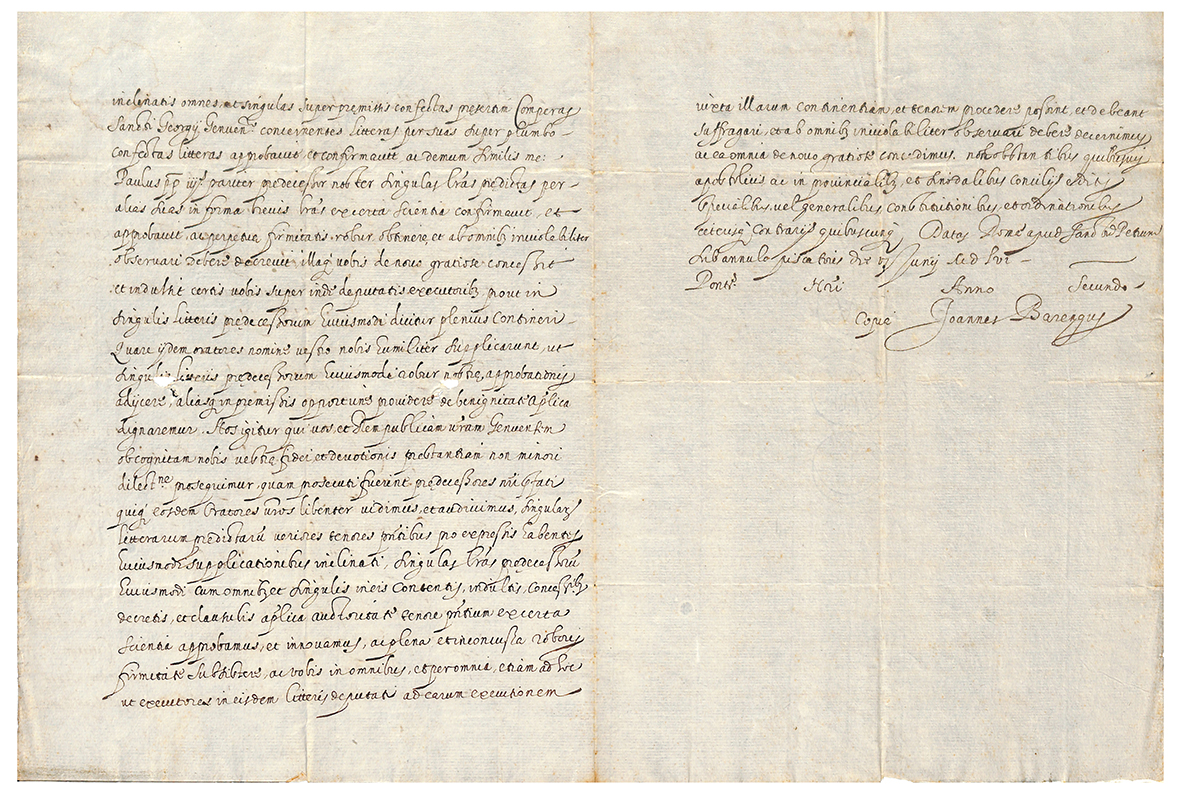 inclinatis omnes, et singulas super premissis confectas presertim Comperas
Sancti Georgij Genuen. concernentes litteras per suas super plumbo
confectas litteras approbavit et confirmavit ac demum similis me:
Paulus pp iij. pariter predecessor noster singulas lras predictas per
alias suas in forma brevis lras ex certa scientia confirmavit, et
approbavit, ac perpetue firmitatis robur obtinere, et ab omnibz inviolabiliter
observari debere decrevit illaqz vobis de novo gratiose concessit
et indulsit certis vobis super inde deputatis executoribz prout in
singulis litteris prędecessorum huiusmodi dicitur plenius contineri
Quare ijdem oratores nomine vestro nobis humiliter supplicarunt, ut
singulis litteris prędecessorum huiusmodi robur nostrę approbationis
adijcere, aliasqz in premissis opportune providere de benignitate aplica
dignaremur. Nos igitur qui vos, et Rem publicam vram Genuensem
ob cognitam nobis vestrę fidei et devotionis prestantiam non minori
dilectne prosequimur, quam prosecuti fuerint prędecessores nri pfati
quiqz eosdem Oratores vros libenter vidimus, et audivimus, singularz
litterarum prędictarū veriores tenores pntibus pro expressis habentes
huiusmodi supplicationibus inclinati, singulas lras prędecessorū
huiusmodi cum omnibz et singulis in eis contentis, indultis, concessibz
decretis, et clausulis aplica auctoritate tenore pntium ex certa
scientia approbamus, et innovamus, ac plena et inconcussa roboris
firmitate subsistere, ac vobis in omnibus, et per omnia, etiam ad hoc
ut executores in eisdem litteris deputati ad earum executionem
iuxta illarum continentiam, et tenorem procedere possint, et debeant
suffragari, et ab omnibz inviolabiliter observari debere decernimus
ac ea omnia de novo gratiose concedimus. non obstantibus quibusvis
apostolicis ac in provincialibz, et sinodalibus concilijs editis
specialibus, vel generalibus constitutionibus, et ordinationibus
ceterisqz contrarijs quibuscunqz Datas Rome apud Sanctum Petrum
sub annulo piscatoris die Junij M D lvi
Ponts. Nri Anno Secundo
Copie Joannes Barengus